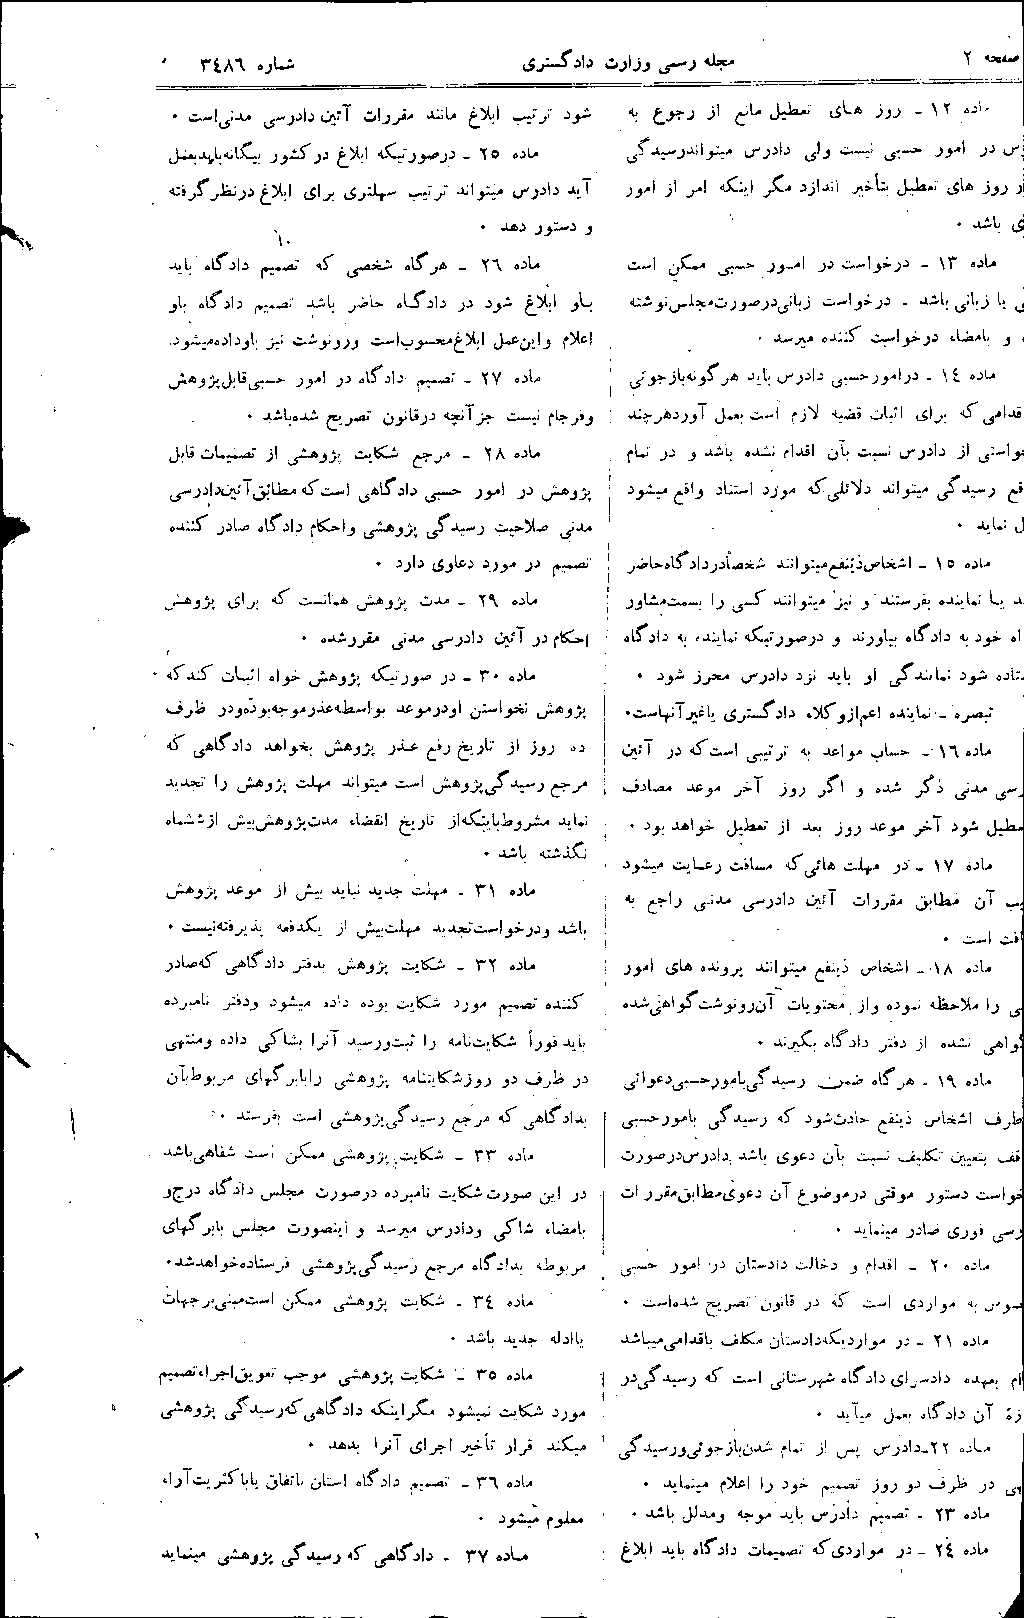 صفحه ۲
مجله رسمی وزارت دادگستری
شماره ۳٤۸٦
ماده ۱۲ - روز های تعطیل مانع از رجوع به
در امور حسبی نیست ولی دادرس میتواند رسیدگی
روز های تعطیل بتأخیر اندازد مگر اینکه امر از امور
باشد ۰
ماده ۱۳ - درخواست در امور حسبی ممکن است
یا زبانی باشد - درخواست زبانی در صورت مجلس نوشته
و بامضاء درخواست کننده میرسد ۰
ماده ۱٤ - در امور حسبی دادرس باید هر گونه بازجوئی
که برای اثبات قضیه لازم است بعمل آورد هر چند
از دادرس نسبت بآن اقدام نشده باشد و در تمام
رسیدگی میتواند دلائلی که مورد استناد واقع میشود
نماید ۰
ماده ۱٥ - اشخاص ذینفع میتوانند شخصاً در دادگاه حاضر
یا نماینده بفرستند و نیز میتوانند کسی را بسمت مشاور
خود به دادگاه بیاورند و در صورتیکه نماینده به دادگاه
شود نمایندگی او باید نزد دادرس محرز شود ۰
تبصره - نماینده اعم از وکلاء دادگستری یا غیر آنهاست ۰
ماده ۱٦ - حساب مواعد به ترتیبی است که در آئین
مدنی ذکر شده و اگر روز آخر موعد مصادف
شود آخر موعد روز بعد از تعطیل خواهد بود ۰
ماده ۱۷ - در مهلت هائی که مسافت رعایت میشود
آن مطابق مقررات آئین دادرسی مدنی راجع به
است ۰
ماده ۱۸ - اشخاص ذینفع میتوانند پرونده های امور
را ملاحظه نموده و از محتویات آن رونوشت گواهی شده
نشده از دفتر دادگاه بگیرند ۰
ماده ۱۹ - هر گاه ضمن رسیدگی بامور حسبی دعوائی
طرف اشخاص ذینفع حادث شود که رسیدگی بامور حسبی
بتعیین تکلیف نسبت بآن دعوی باشد دادرس در صورت
دستور موقتی در موضوع آن دعوی مطابق مقررات
فوری صادر مینماید ۰
ماده ۲۰ - اقدام و دخالت دادستان در امور حسبی
به مواردی است که در قانون تصریح شده است ۰
ماده ۲۱ - در مواردیکه دادستان مکلف باقدامی میباشد
بعهده دادسرای دادگاه شهرستانی است که رسیدگی در
آن دادگاه بعمل میآید ۰
ماده ۲۲ - دادرس پس از تمام شدن بازجوئی و رسیدگی
در ظرف دو روز تصمیم خود را اعلام مینماید ۰
ماده ۲۳ - تصمیم دادرس باید موجه و مدلل باشد ۰
ماده ۲٤ - در مواردی که تصمیمات دادگاه باید ابلاغ
شود ترتیب ابلاغ مانند مقررات آئین دادرسی مدنی است ۰
ماده ۲٥ - در صورتیکه ابلاغ در کشور بیگانه باید بعمل
آید دادرس میتواند ترتیب سهلتری برای ابلاغ در نظر گرفته
و دستور دهد ۰
ماده ۲٦ - هر گاه شخصی که تصمیم دادگاه باید
باو ابلاغ شود در دادگاه حاضر باشد تصمیم دادگاه باو
اعلام و این عمل ابلاغ محسوب است و رونوشت نیز باو داده میشود.
ماده ۲۷ - تصمیم دادگاه در امور حسبی قابل پژوهش
و فرجام نیست جز آنچه در قانون تصریح شده باشد ۰
ماده ۲۸ - مرجع شکایت پژوهشی از تصمیمات قابل
پژوهش در امور حسبی دادگاهی است که مطابق آئین دادرسی
مدنی صلاحیت رسیدگی پژوهشی و احکام دادگاه صادر کننده
تصمیم در مورد دعاوی دارد ۰
ماده ۲۹ - مدت پژوهش همانست که برای پژوهش
احکام در آئین دادرسی مدنی مقرر شده ۰
ماده ۳۰ - در صورتیکه پژوهش خواه اثبات کند که
پژوهش نخواستن او در موعد بواسطه عذر موجه بوده و در ظرف
ده روز از تاریخ رفع عذر پژوهش بخواهد دادگاهی که
مرجع رسیدگی پژوهش است میتواند مهلت پژوهش را تجدید
نماید مشروط باینکه از تاریخ انقضاء مدت پژوهش بیش از ششماه
نگذشته باشد ۰
ماده ۳۱ - مهلت جدید نباید بیش از موعد پژوهش
باشد و درخواست تجدید مهلت بیش از یکدفعه پذیرفته نیست ۰
ماده ۳۲ - شکایت پژوهش بدفتر دادگاهی که صادر
کننده تصمیم مورد شکایت بوده داده میشود و دفتر نامبرده
باید فوراً شکایت نامه را ثبت و رسید آنرا بشاکی داده و منتهی
در ظرف دو روز شکایتنامه پژوهشی را با برگهای مربوط بآن
بدادگاهی که مرجع رسیدگی پژوهشی است بفرستد ۰
ماده ۳۳ - شکایت پژوهشی ممکن است شفاهی باشد
در این صورت شکایت نامبرده در صورت مجلس دادگاه درج و
بامضاء شاکی و دادرس میرسد و اینصورت مجلس با برگهای
مربوطه بدادگاه مرجع رسیدگی پژوهشی فرستاده خواهد شد ۰
ماده ۳٤ - شکایت پژوهشی ممکن است مبنی بر جهات
یا ادله جدید باشد ۰
ماده ۳٥ - شکایت پژوهشی موجب تعویق اجراء تصمیم
مورد شکایت نمیشود مگر اینکه دادگاهی که رسیدگی پژوهشی
میکند قرار تأخیر اجرای آنرا بدهد ۰
ماده ۳٦ - تصمیم دادگاه استان باتفاق یا باکثریت آراء
معلوم میشود ۰
ماده ۳۷ - دادگاهی که رسیدگی پژوهشی مینماید